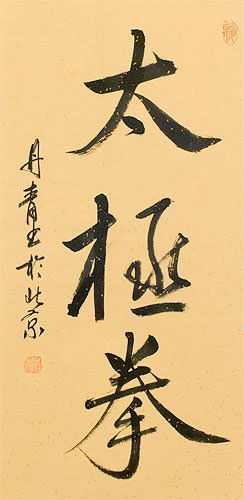 太極拳
丹青书於北京